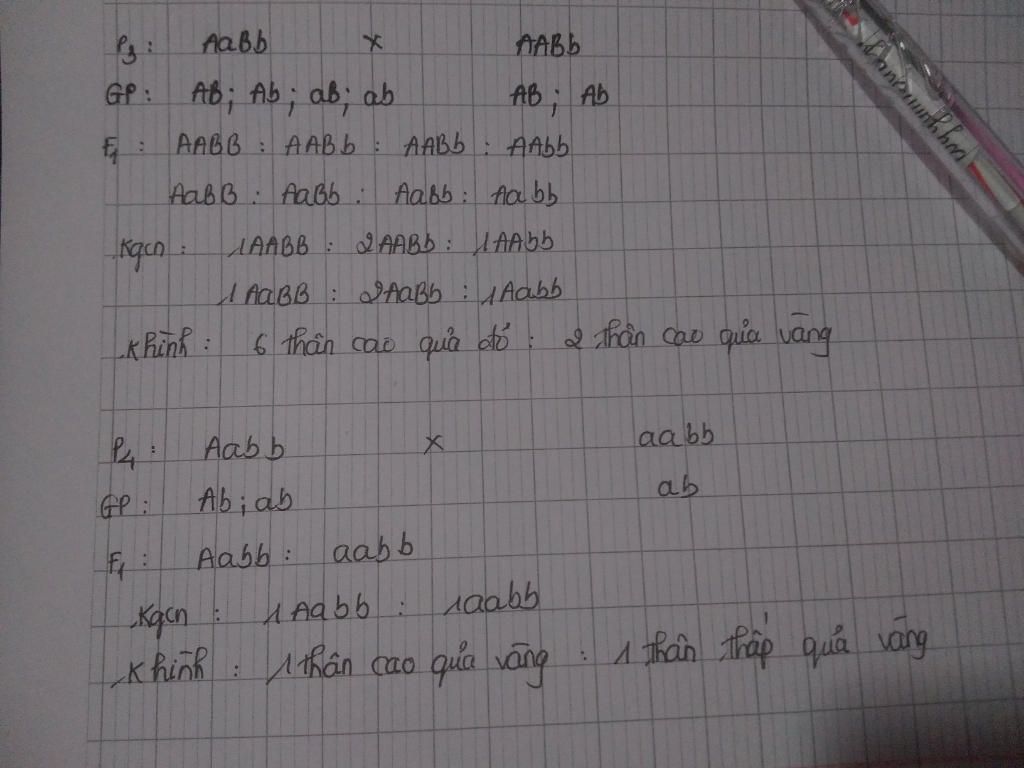 P₃ : AaBb x AABb
GP : AB ; Ab ; aB ; ab AB ; Ab
F₁ : AABB : AABb : AABb : AAbb
AaBB : AaBb : AaBb : Aabb
Kgen : 1AABB : 2AABb : 1AAbb
1AaBB : 2AaBb : 1Aabb
Khình : 6 thân cao quả đỏ : 2 thân cao quả vàng
P₄ : Aabb x aabb
GP : Ab ; ab ab
F₁ : Aabb : aabb
Kgen : 1Aabb : 1aabb
Khình : 1 thân cao quả vàng : 1 thân thấp quả vàng